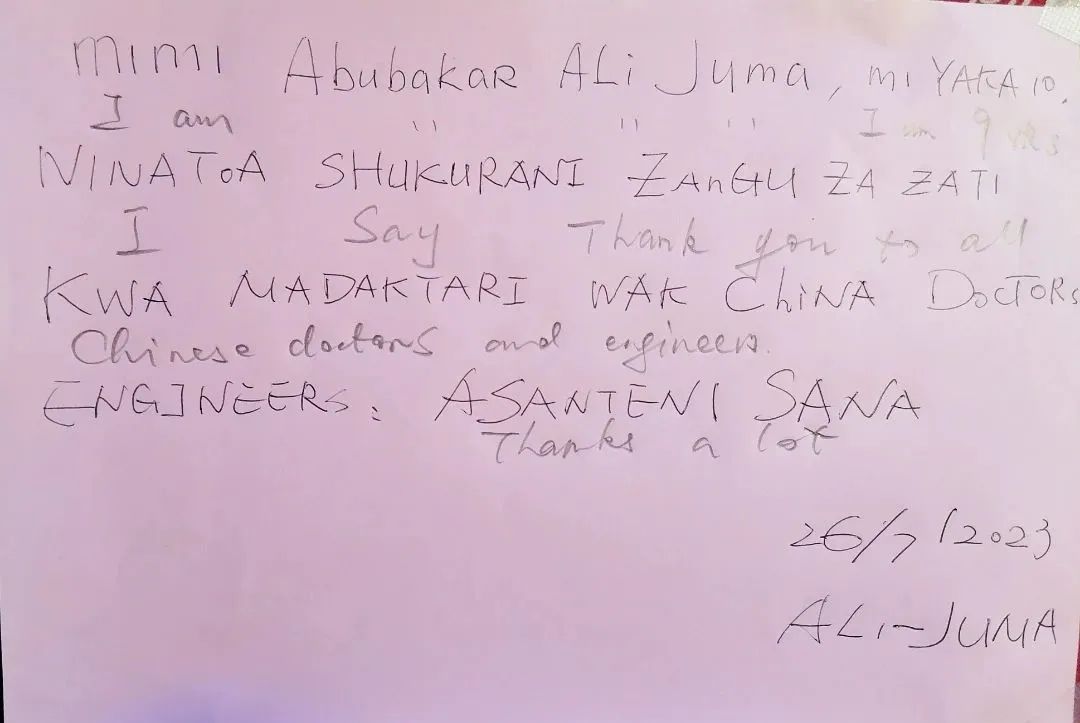 MIMI Abubakar ALi Juma, mi YAKA 10.
I am " " " I am 9 yrs
NINAToA SHUKURANI ZAnGU ZA ZATI
I Say Thank you to all
KWA MADAKTARI WAK ChiNA DoCTORs
Chinese doctors and engineers.
ENGINEERs: ASANTENI SANA
Thanks a lot
26/7/2023
ALI-JUMA